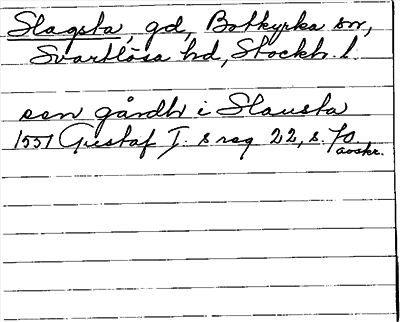 Slagsta, gd, Botkyrka sn,
Svartlösa hd, Stockh. l.
een gårdh i Slausta
1557 Gustaf I. s reg 22, s. 70.
avskr.